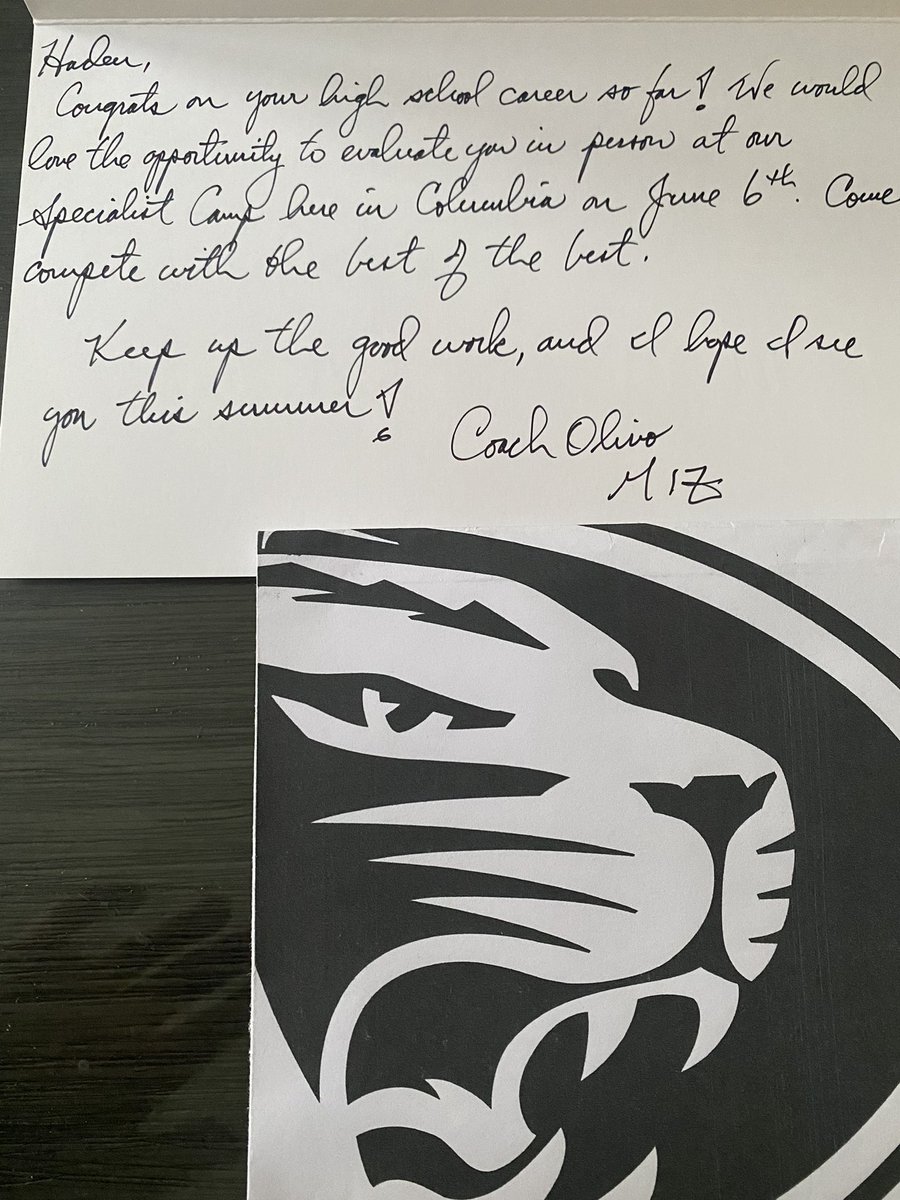 Haden,
Congrats on your high school career so far! We would
love the opportunity to evaluate you in person at our
Specialist Camp here in Columbia on June 6th. Come
compete with the best of the best.
Keep up the good work, and I hope I see
you this summer!
Coach Olivo
MIZ